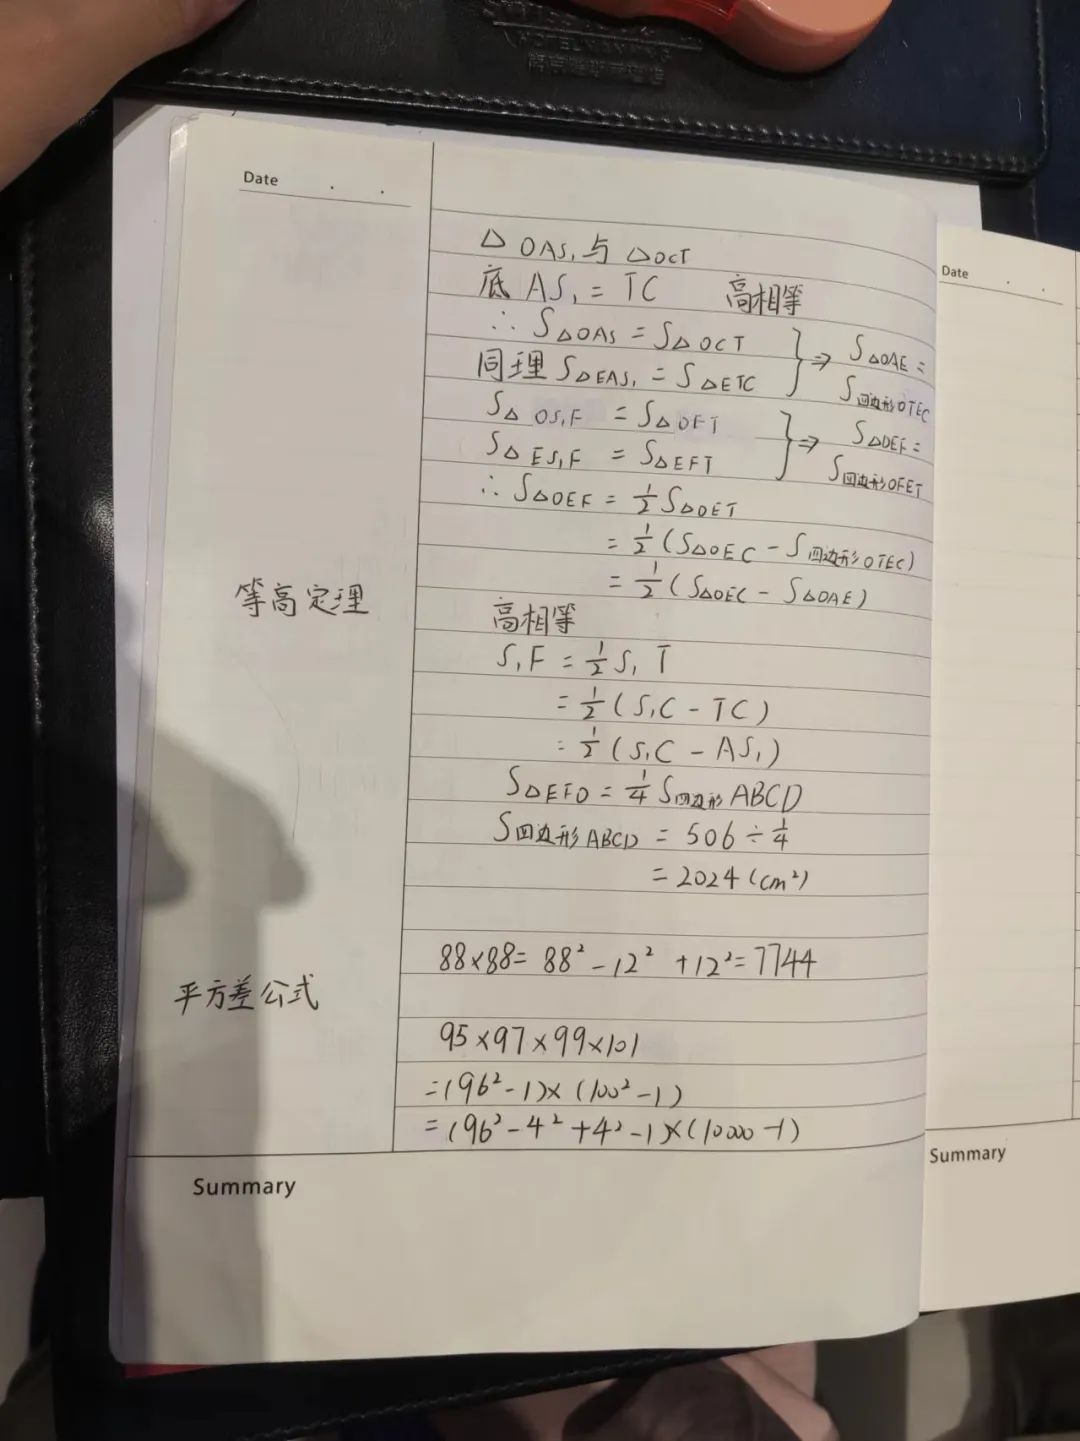 Date . .
△OAS₁与△OCT
底 AS₁ = TC 高相等
∴ S△OAS = S△OCT
同理 S△EAS₁ = S△ETC
} ⇒ S△OAE =
S四边形OTEC
S△OS₁F = S△OFT
S△ES₁F = S△EFT
} ⇒ S△OEF =
S四边形OFET
∴ S△OEF = ½ S△OET
= ½ (S△OEC - S四边形OTEC)
= ½ (S△OEC - S△OAE)
等高定理
高相等
S₁F = ½ S₁T
= ½ (S₁C - TC)
= ½ (S₁C - AS₁)
S△EFO = ¼ S四边形ABCD
S四边形ABCD = 506 ÷ ¼
= 2024 (cm²)
88×88 = 88² - 12² + 12² = 7744
平方差公式
95×97×99×101
= (96² - 1)× (100² - 1)
= (96² - 4² + 4² - 1)×(10000 - 1)
Summary
Date . .
Summary